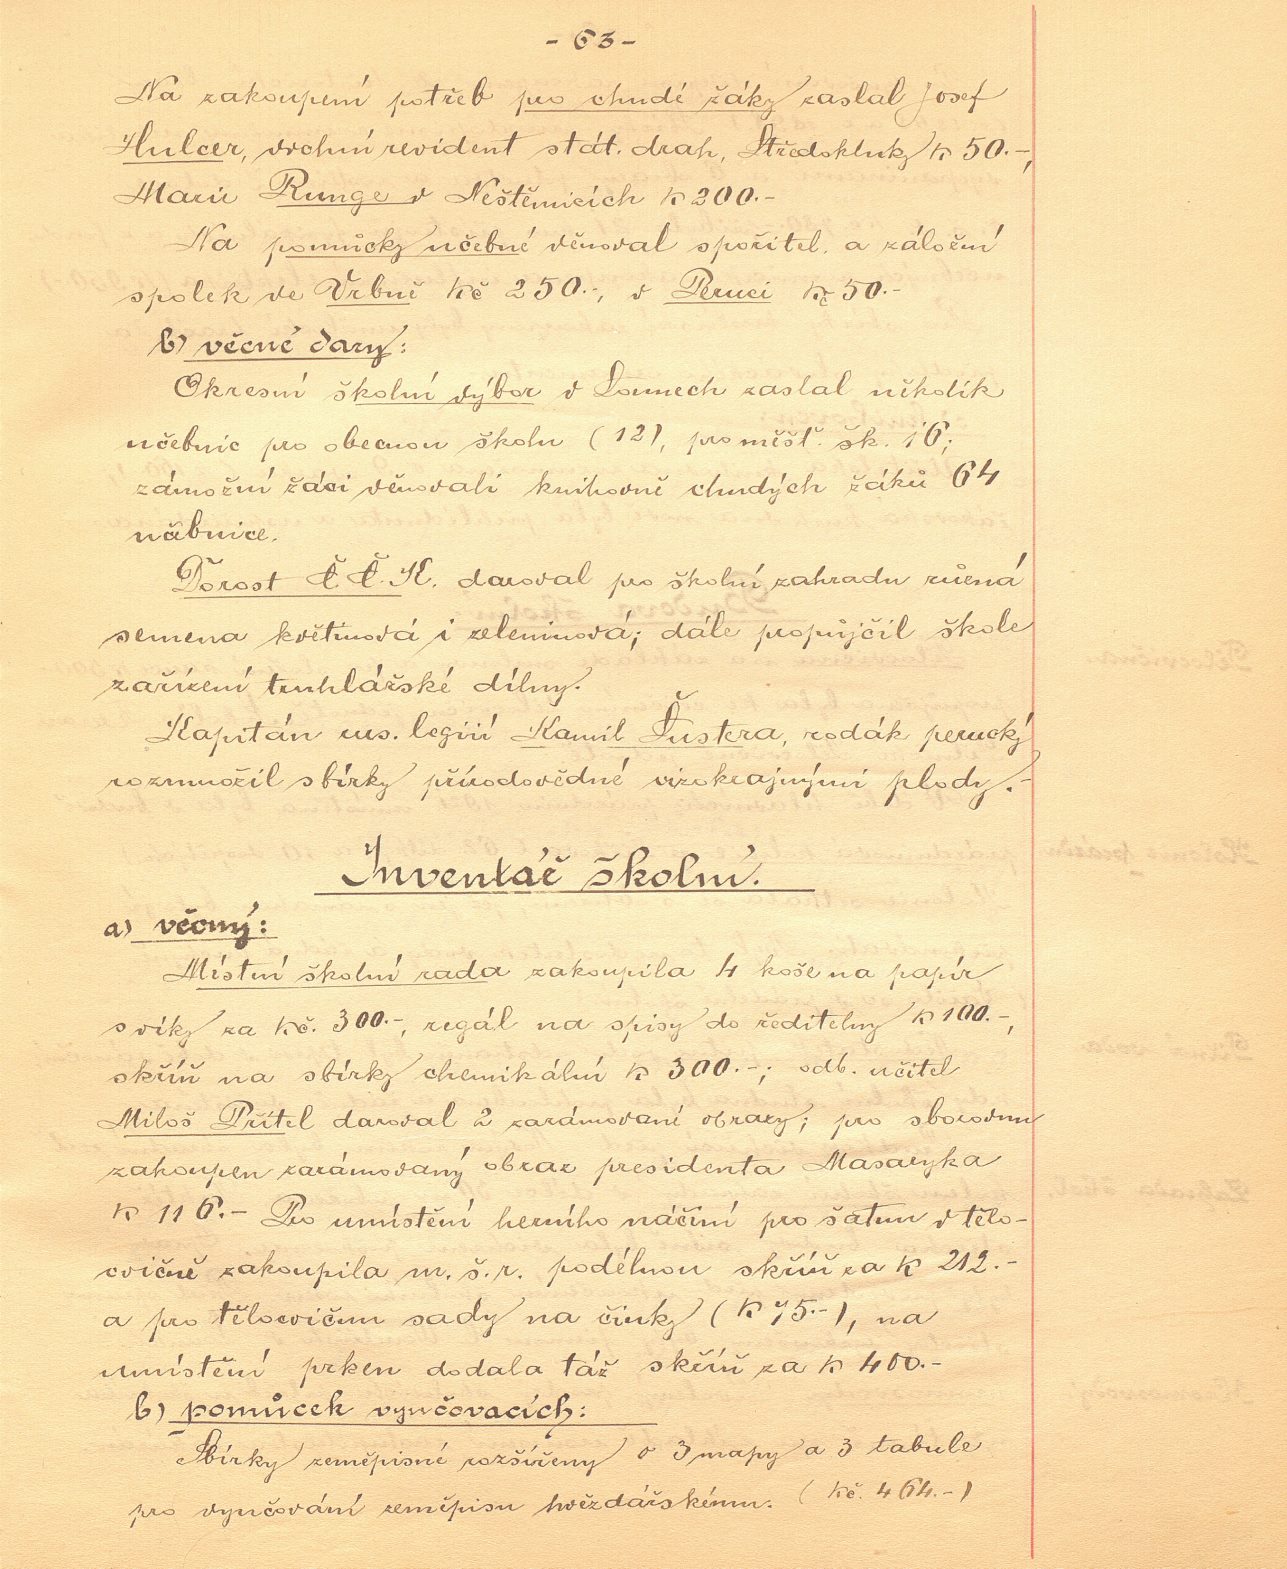 - 63 -
Na zakoupení potřeb pro chudé žáky zaslal Josef
Hulcer, vrchní revident stát. drah, Středokluky K 50.-,
Marie Runge v Neštěmicích K 200.-
Na pomůcky učebné věnoval spořitel. a záložní
spolek ve Vrbně Kč 250.-, v Peruci Kč 50.-
b) věcné dary:
Okresní školní výbor v Lounech zaslal několik
učebnic pro obecnou školu (12), pro měšť. šk. 16;
zámožní žáci věnovali knihovně chudých žáků 64
učebnice.
Dorost Č. Č. K. daroval pro školní zahradu různá
semena květinová i zeleninová; dále propůjčil škole
zařízení truhlářské dílny.
Kapitán rus. legií Kamil Šustera, rodák perucký
rozmnožil sbírky přírodovědné cizokrajnými plody.-
Inventář školní.
a) věcný:
Místní školní rada zakoupila 4 koše na papír
s víky za Kč. 300.-, regál na spisy do ředitelny K 100.-,
skříň na sbírky chemikální K 300.-; odb. učitel
Miloš Přítel daroval 2 zarámované obrazy; pro sborovnu
zakoupen zarámovaný obraz presidenta Masaryka
K 116.- Pro umístění herního náčiní pro šatnu v tělo-
cvičně zakoupila m. š. r. podélnou skříň za K 212.-
a pro tělocvičnu sady na činky (K 75.-), na
umístění prken dodala táž skříň za K 400.-
b) pomůcek vyučovacích:
Sbírky zeměpisné rozšířeny o 3 mapy a 3 tabule
pro vyučování zeměpisu hvězdářskému. (Kč. 464.-)